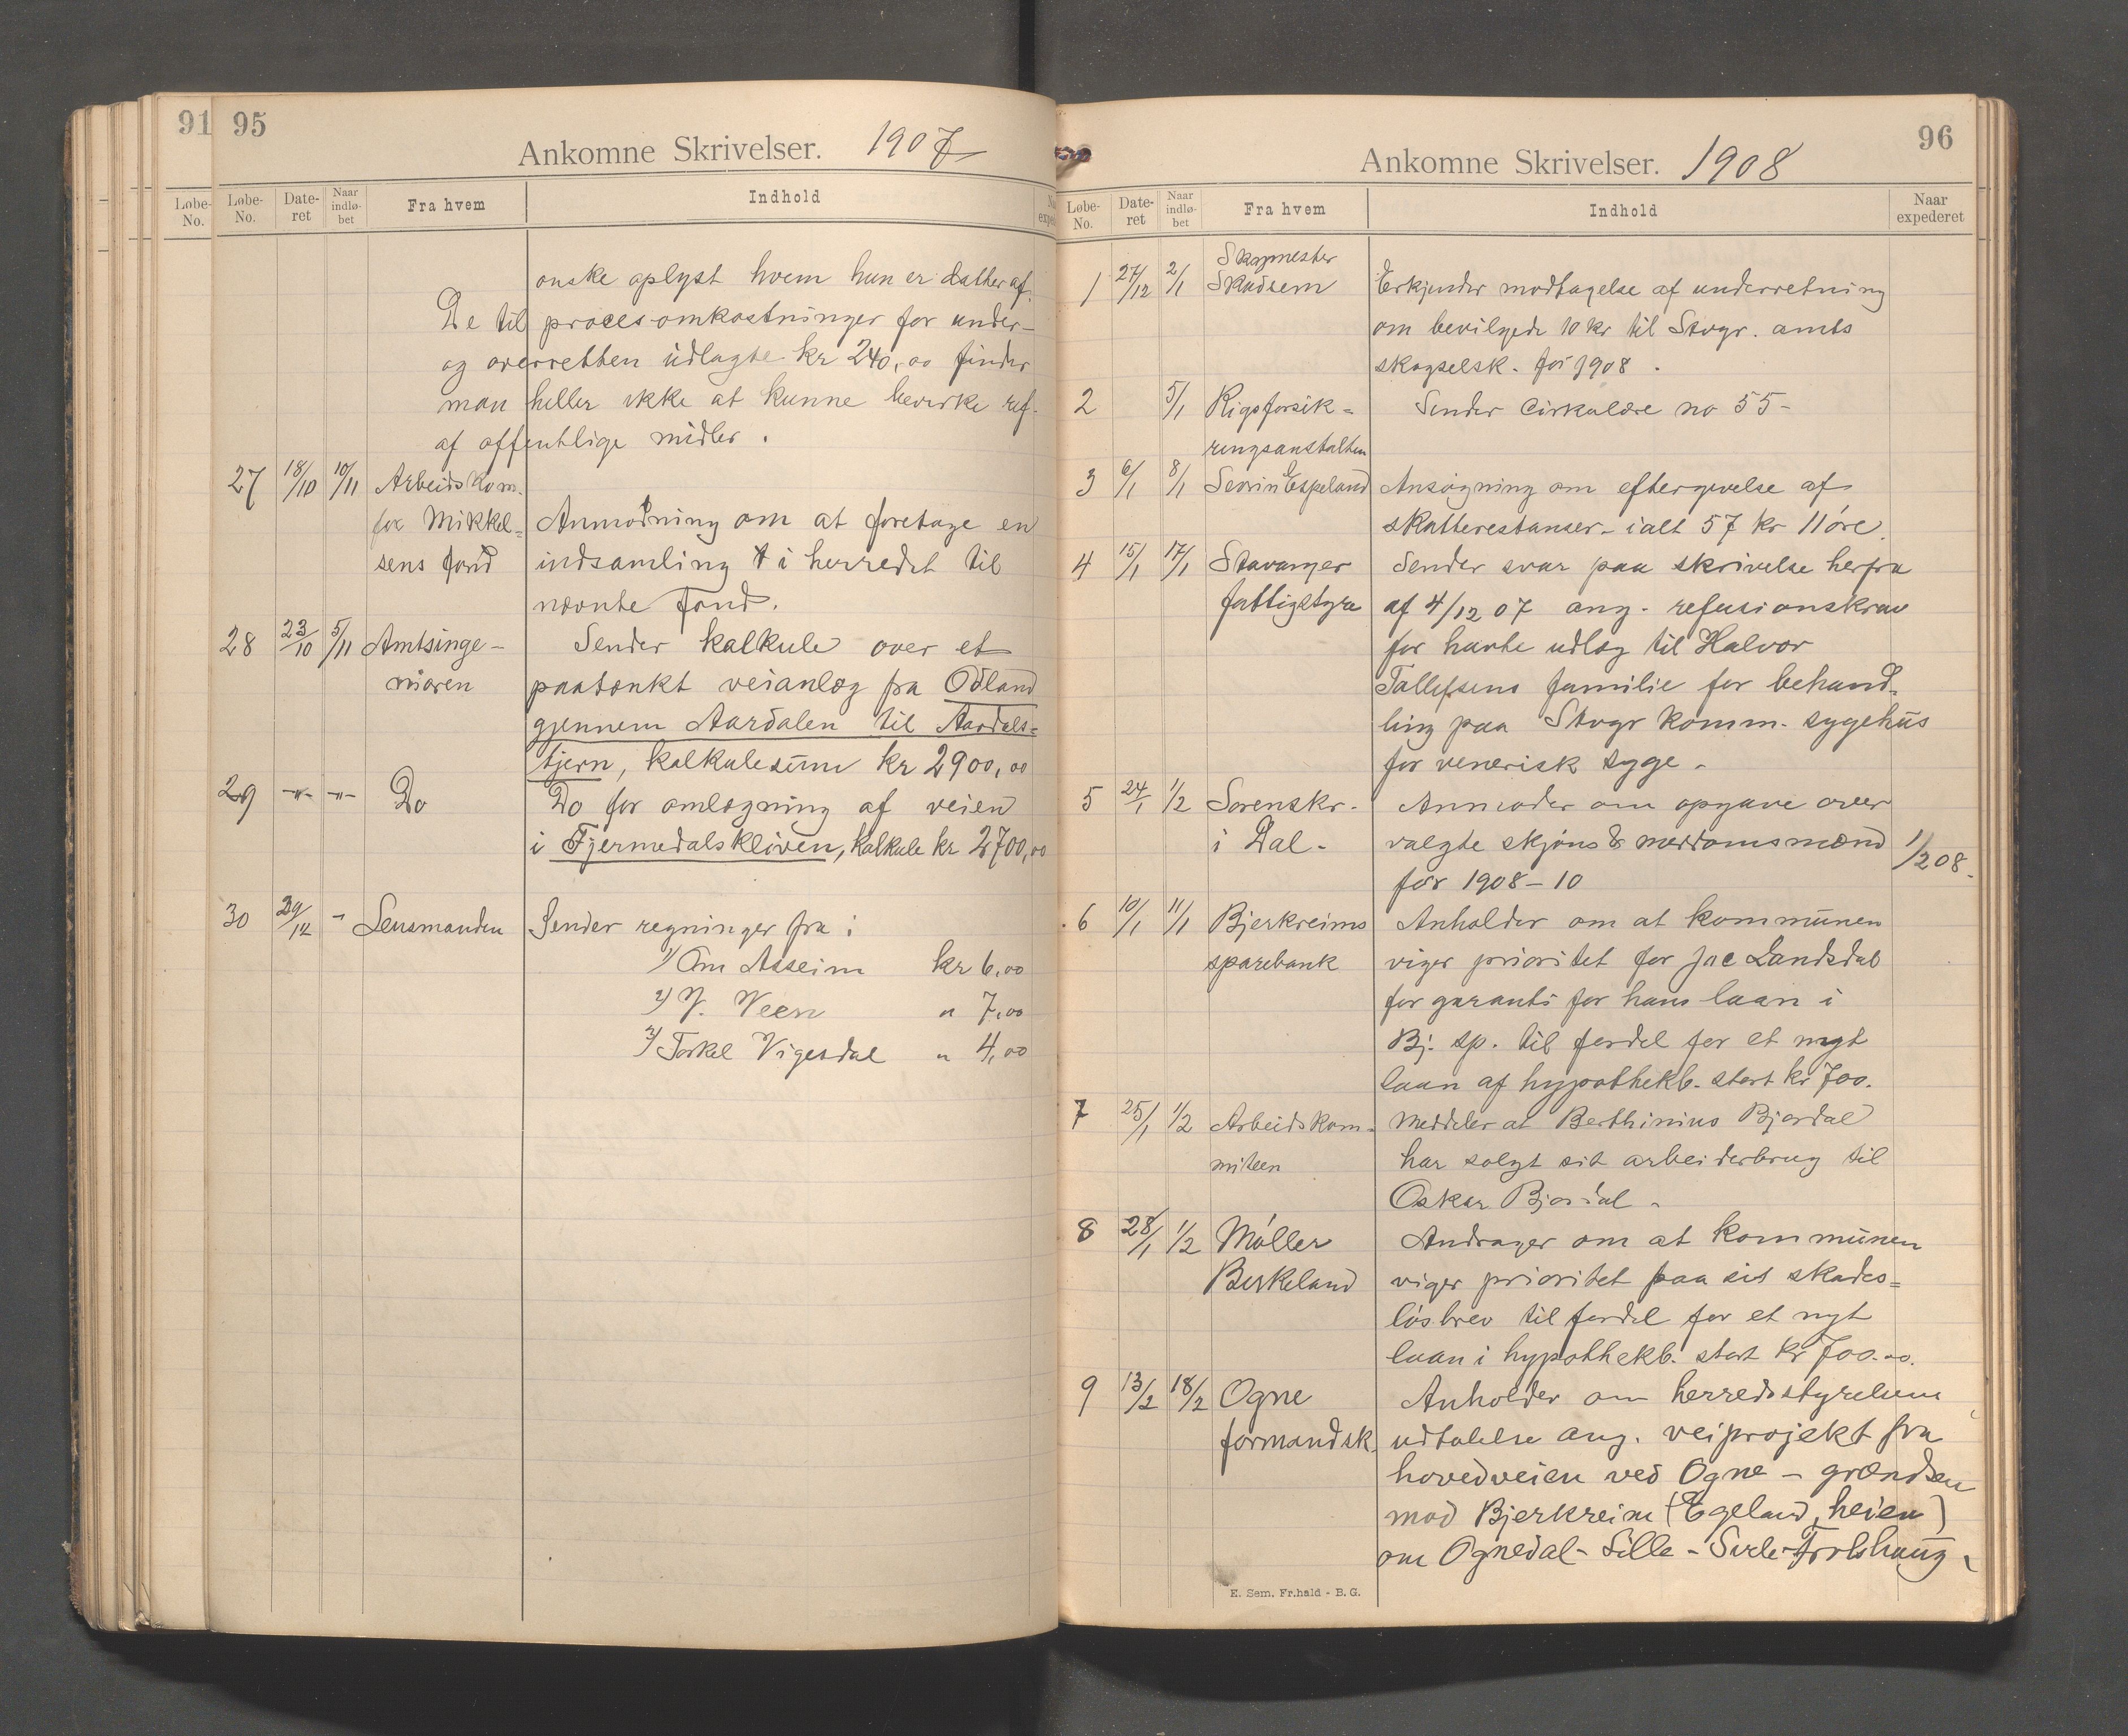 91 95
Ankomne Skrivelser. 1907
Løbe-No. Løbe-No. Date-ret Naar indlø-bet Fra hvem Indhold
ønske oplyst hvem hun er datter af.
De til procesomkostninger for under-
og overretten udlagte kr 240,00 finder
man heller ikke at kunne bevirke ref.
af offentlige midler.
27 18/10 10/11 Arbeidskom.
for Mikkel- Anmodning om at foretage en
sens fond indsamling i herredet til
nævnte fond.
28 23/10 5/11 Amtsinge- Sender kalkule over et
niøren paatænkt veianlæg fra Ødland
gjennem Aardalen til Aardals-
tjern, kalkulesum kr 2900,00
29 -"- -"- Do Do for omlægning af veien
i Fjermedalskleven, kalkule kr 2700,00
30 29/12 - Lensmanden Sender regninger fra:
1) Om Asseim kr 6,00
2) J. Veen " 7,00
3) Torkel Vigesdal " 4,00
96
Ankomne Skrivelser. 1908
Løbe-No. Date-ret Naar indlø-bet Fra hvem Indhold Naar expederet
Skogmester
1 27/12 2/1 Skadsem Erkjender modtagelse af underretning
om bevilgede 10 kr til Stvgr. amts
skogselsk. for 1908.
2 5/1 Rigsforsik- Sender Cirkulære no 55-
ringsanstalten
3 6/1 8/1 Sevrin E Espeland Ansøgning om eftergivelse af
skatterestanser - ialt 57 kr 11 øre.
4 15/1 17/1 Stavanger Sender svar paa skrivelse herfra
fattigstyre af 4/12 07 ang. refusionskrav
for havte udlæg til Halvor
Tollefsens familie for behand-
ling paa Stvgr komm. sygehus
for venerisk syge -
5 24/1 1/2 Sorenskr. Anmoder om opgave over
i Dal - valgte skjøns & meddomsmænd 1/2 08.
for 1908-10
6 10/1 11/1 Bjerkreims Anholder om at kommunen
sparebank viger prioritet for Jac Landsdal
for garanti for hans laan i
Bj. sp. til fordel for et nyt
laan af hypothekb. stort kr 700.
7 25/1 1/2 Arbeidskom- Meddeler at Berthinius Bjordal
miteen har solgt sit arbeiderbrug til
Oskar Bjordal -
8 28/1 1/2 Møller Andrager om at kommunen
Birkeland viger prioritet paa sit skades-
løsbrev til fordel for et nyt
laan i hypothekb. stort kr 700.00.
9 13/2 18/2 Ogne Anholder om herredsstyrelsens
formandsk. udtalelse ang. veiprojekt fra
hovedveien ved Ogne - grændsen
mod Bjerkreim (Egeland, heien)
om Ognedal - Sille - Svele - Trolshaug -
E. Sem. Fr.hald - B. G.